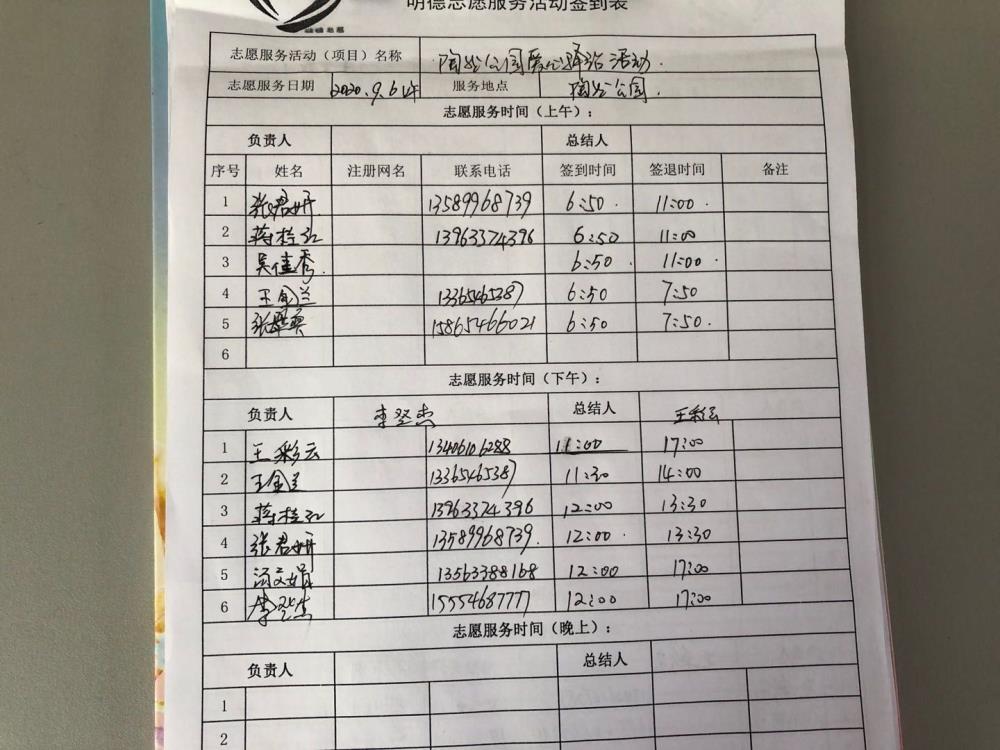 明德志愿服务活动签到表
志愿服务活动（项目）名称 陶然公园爱心驿站活动.
志愿服务日期 2020.9.6 服务地点 陶然公园.
志愿服务时间（上午）:
负责人 总结人
序号 姓名 注册网名 联系电话 签到时间 签退时间 备注
1 张君妍 13589968739 6:50. 11:00.
2 蒋桂红 13963374396 6:50 11:00
3 吴佳秀. 6:50. 11:00.
4 王金兰 1336546538 6:50 7:50
5 15865466021 6:50 7:50.
6
志愿服务时间（下午）:
负责人 李堃杰 总结人 王彩云
1 王彩云 13406106288 11:00 17:00
2 王金兰 1336546538 11:30 14:00
3 蒋桂红 13963374396 12:00 13:30
4 张君妍 13589968739. 12:00. 13:30
5 汤文娟 13563388168 12:00 17:00
6 李堃杰 15554687777 12:00 17:00
志愿服务时间（晚上）:
负责人 总结人
1
2